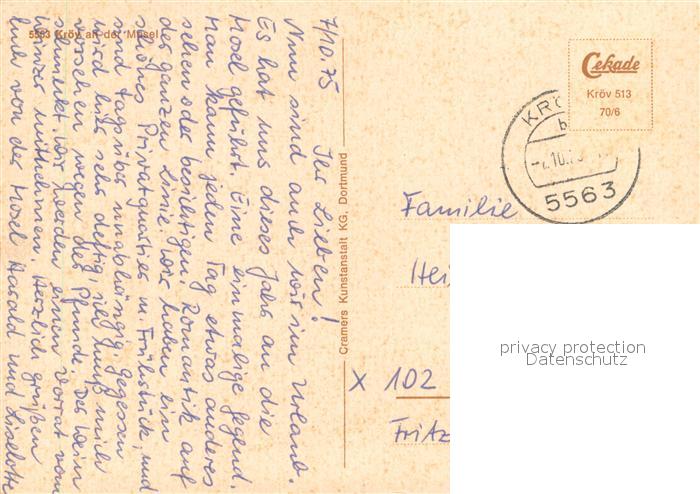 5563 Kröv an der Mosel
7/10.75
Ihr Lieben!
Nun sind auch wir im Urlaub.
Es hat uns dieses Jahr an die
Mosel geführt. Eine einmalige Gegend.
Man kann jeden Tag etwas anderes
sehen oder besichtigen. Romantik auf
der ganzen Linie. Wir haben ein
schönes Privatquartier m. Frühstück, und
sind tagsüber unabhängig. Gegessen
wird hier sehr deftig, sie muß mich
vorsehen wegen der Pfunde. Der Wein
schmeckt, wir werden einen Vorrat vom
Winzer mitnehmen. Herzlich grüßen
Euch von der Mosel Harald und Liselotte
Cramers Kunstanstalt KG. Dortmund
Cekade
Kröv 513
70/6
KRÖ
5563
Familie
Hei
X 102
Fritz
privacy protection
Datenschutz